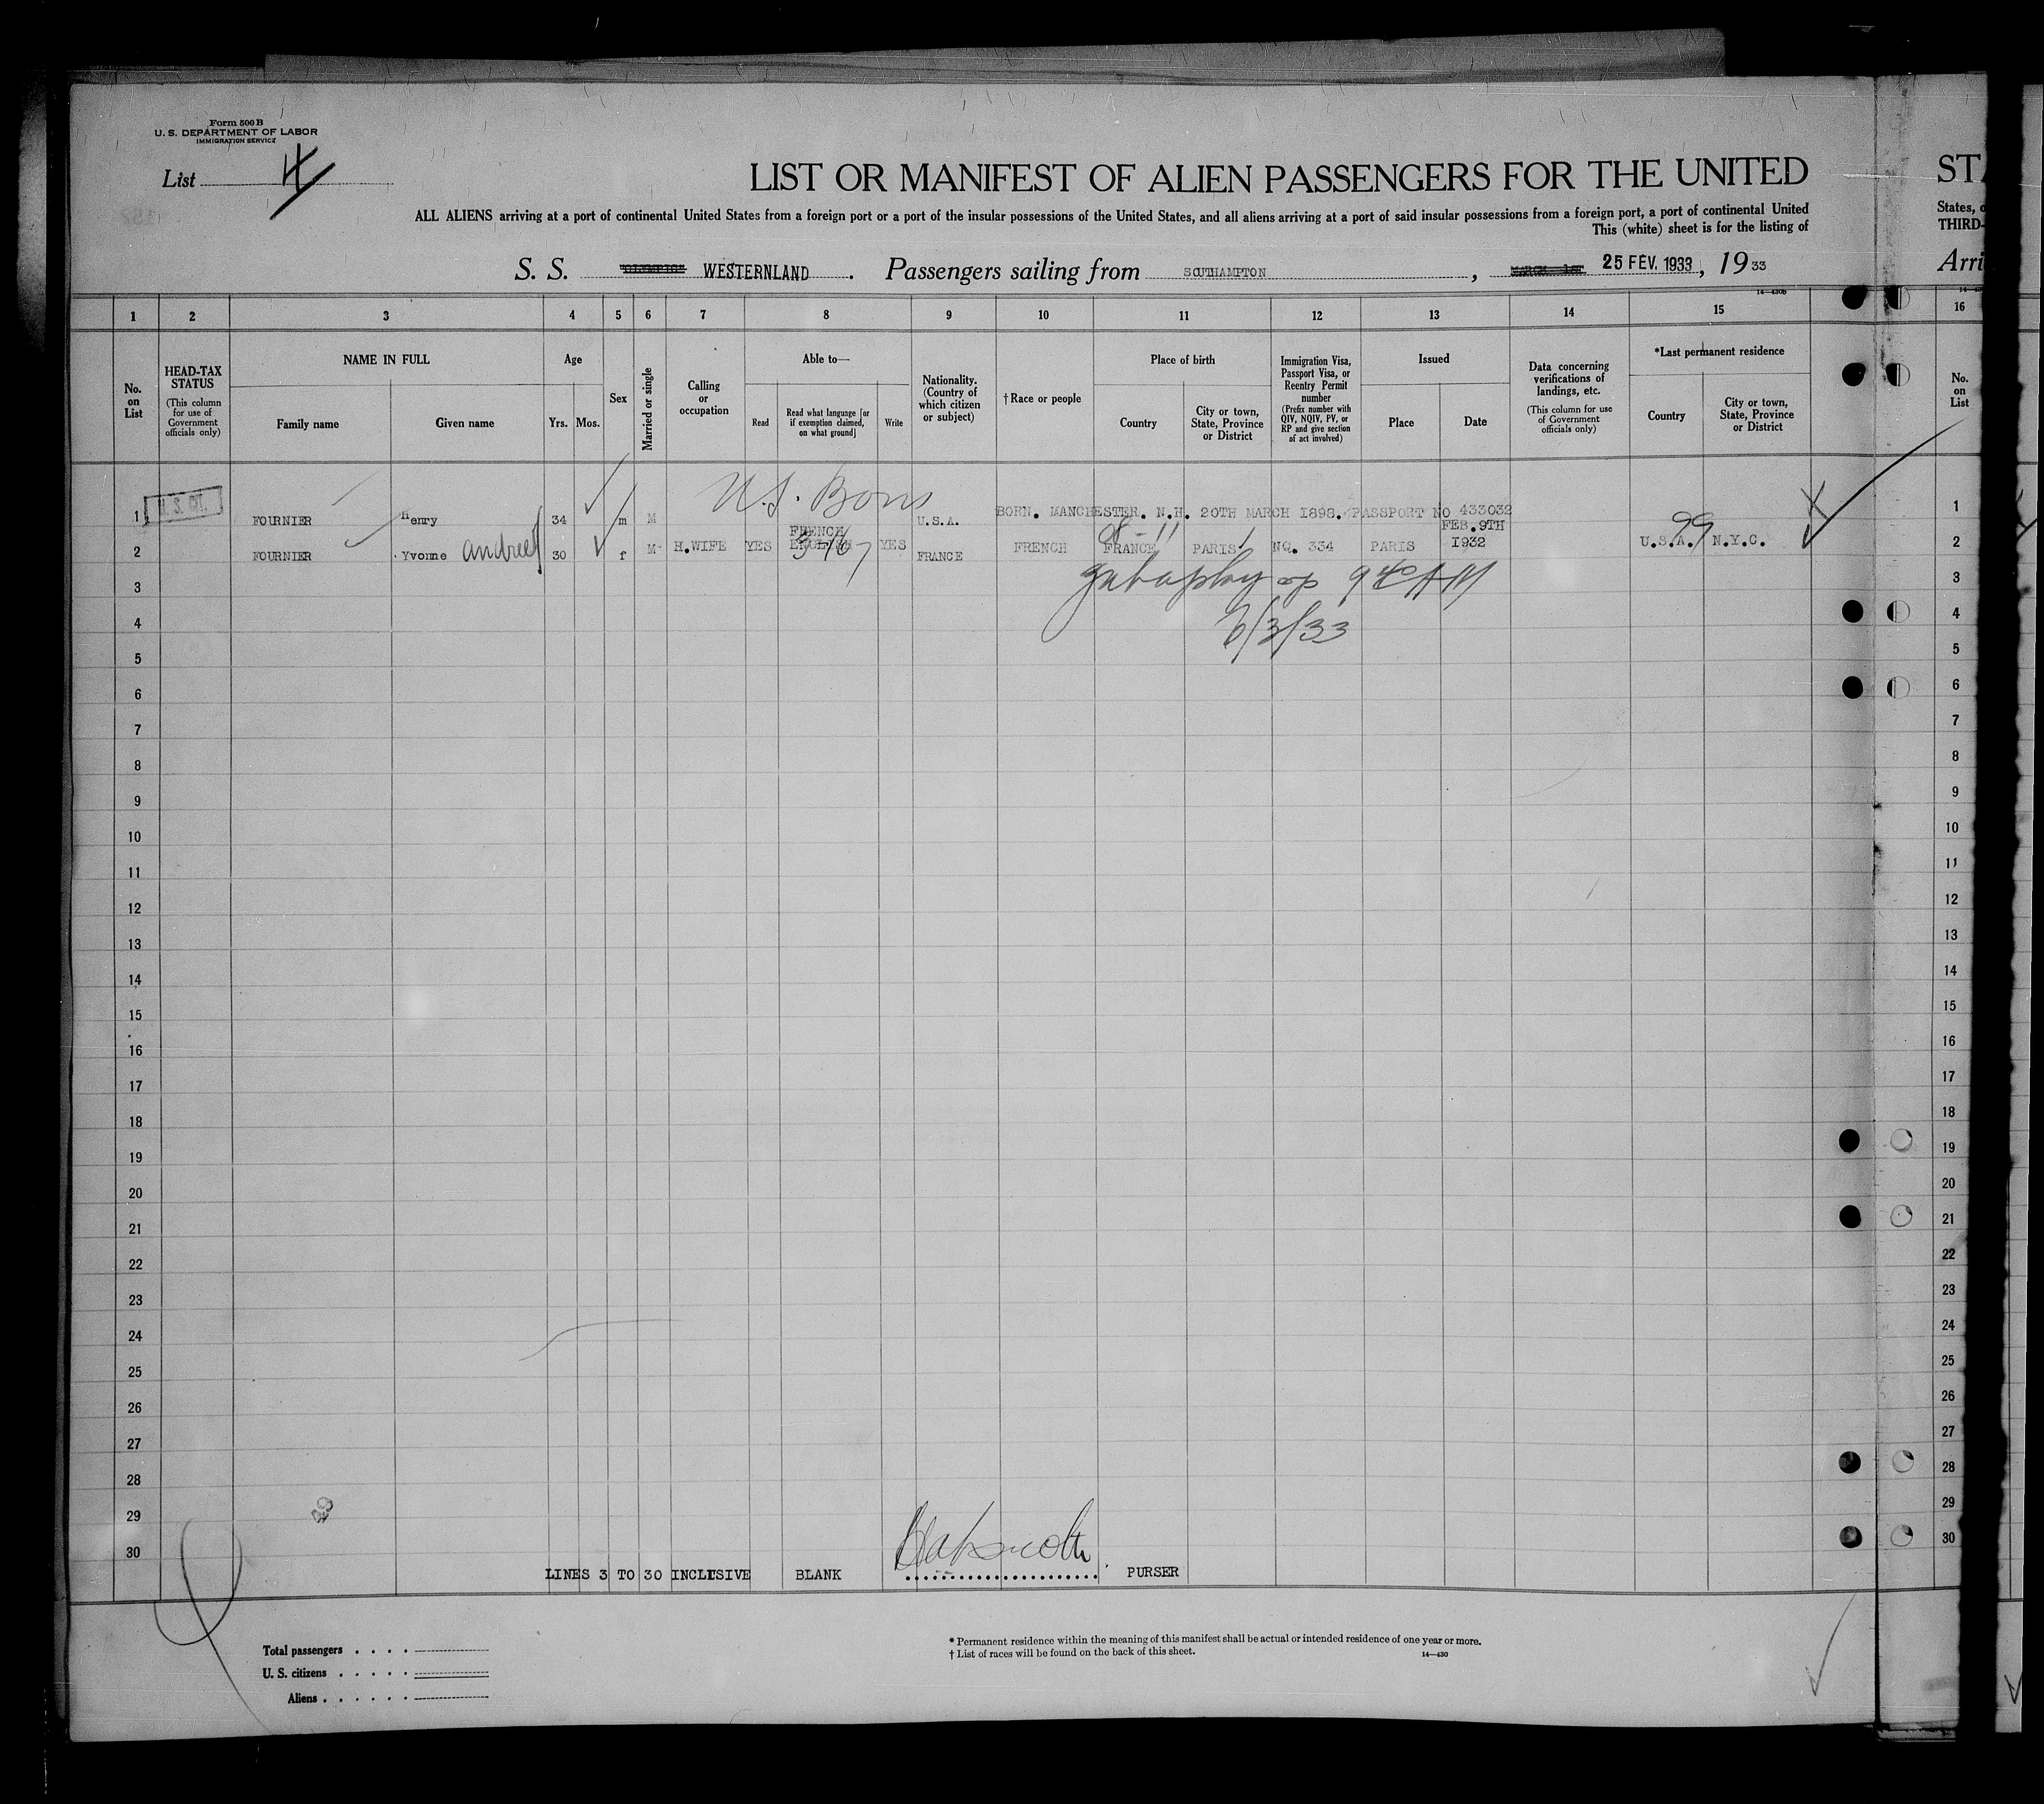 Form 500 B
U. S. DEPARTMENT OF LABOR
IMMIGRATION SERVICE
List 4
LIST OR MANIFEST OF ALIEN PASSENGERS FOR THE UNITED
STA
ALL ALIENS arriving at a port of continental United States from a foreign port or a port of the insular possessions of the United States, and all aliens arriving at a port of said insular possessions from a foreign port, a port of continental United
States, o
This (white) sheet is for the listing of
THIRD-
S. S. WESTERNLAND . Passengers sailing from SOUTHAMPTON , 25 FÉV. 1933 , 19 33
Arri
14-430B
1 2 3 4 5 6 7 8 9 10 11 12 13 14 15 16
No. on List
HEAD-TAX STATUS
(This column for use of Government officials only)
NAME IN FULL
Family name
Given name
Age
Yrs. Mos.
Sex
Married or single
Calling or occupation
Able to—
Read
Read what language [or if exemption claimed, on what ground]
Write
Nationality. (Country of which citizen or subject)
† Race or people
Place of birth
Country
City or town, State, Province or District
Immigration Visa, Passport Visa, or Reentry Permit number
(Prefix number with QIV, NQIV, PV, or RP and give section of act involved)
Issued
Place
Date
Data concerning verifications of landings, etc.
(This column for use of Government officials only)
*Last permanent residence
Country
City or town, State, Province or District
No. on List
U.S. Born
1 U. S. CIT. FOURNIER Henry 34 m M U.S.A. BORN. MANCHESTER. N.H. 20TH MARCH 1898. PASSPORT NO 433032 1
2 FOURNIER Yvonne Andree 30 f M H.WIFE YES FRENCH ENGLISH YES FRANCE FRENCH FRANCE PARIS NQ. 334 PARIS FEB. 9TH 1932 U.S.A. N.Y.C. 2
99
3-10
3 3
9 40 AM
4 4
6/3/33
5 5
6 6
7 7
8 8
9 9
10 10
11 11
12 12
13 13
14 14
15 15
16 16
17 17
18 18
19 19
20 20
21 21
22 22
23 23
24 24
25 25
26 26
27 27
28 28
29 29
30 30
LINES 3 TO 30 INCLUSIVE BLANK PURSER
Total passengers . . . .
U. S. citizens . . . . .
Aliens . . . . . .
* Permanent residence within the meaning of this manifest shall be actual or intended residence of one year or more.
† List of races will be found on the back of this sheet.
14—430